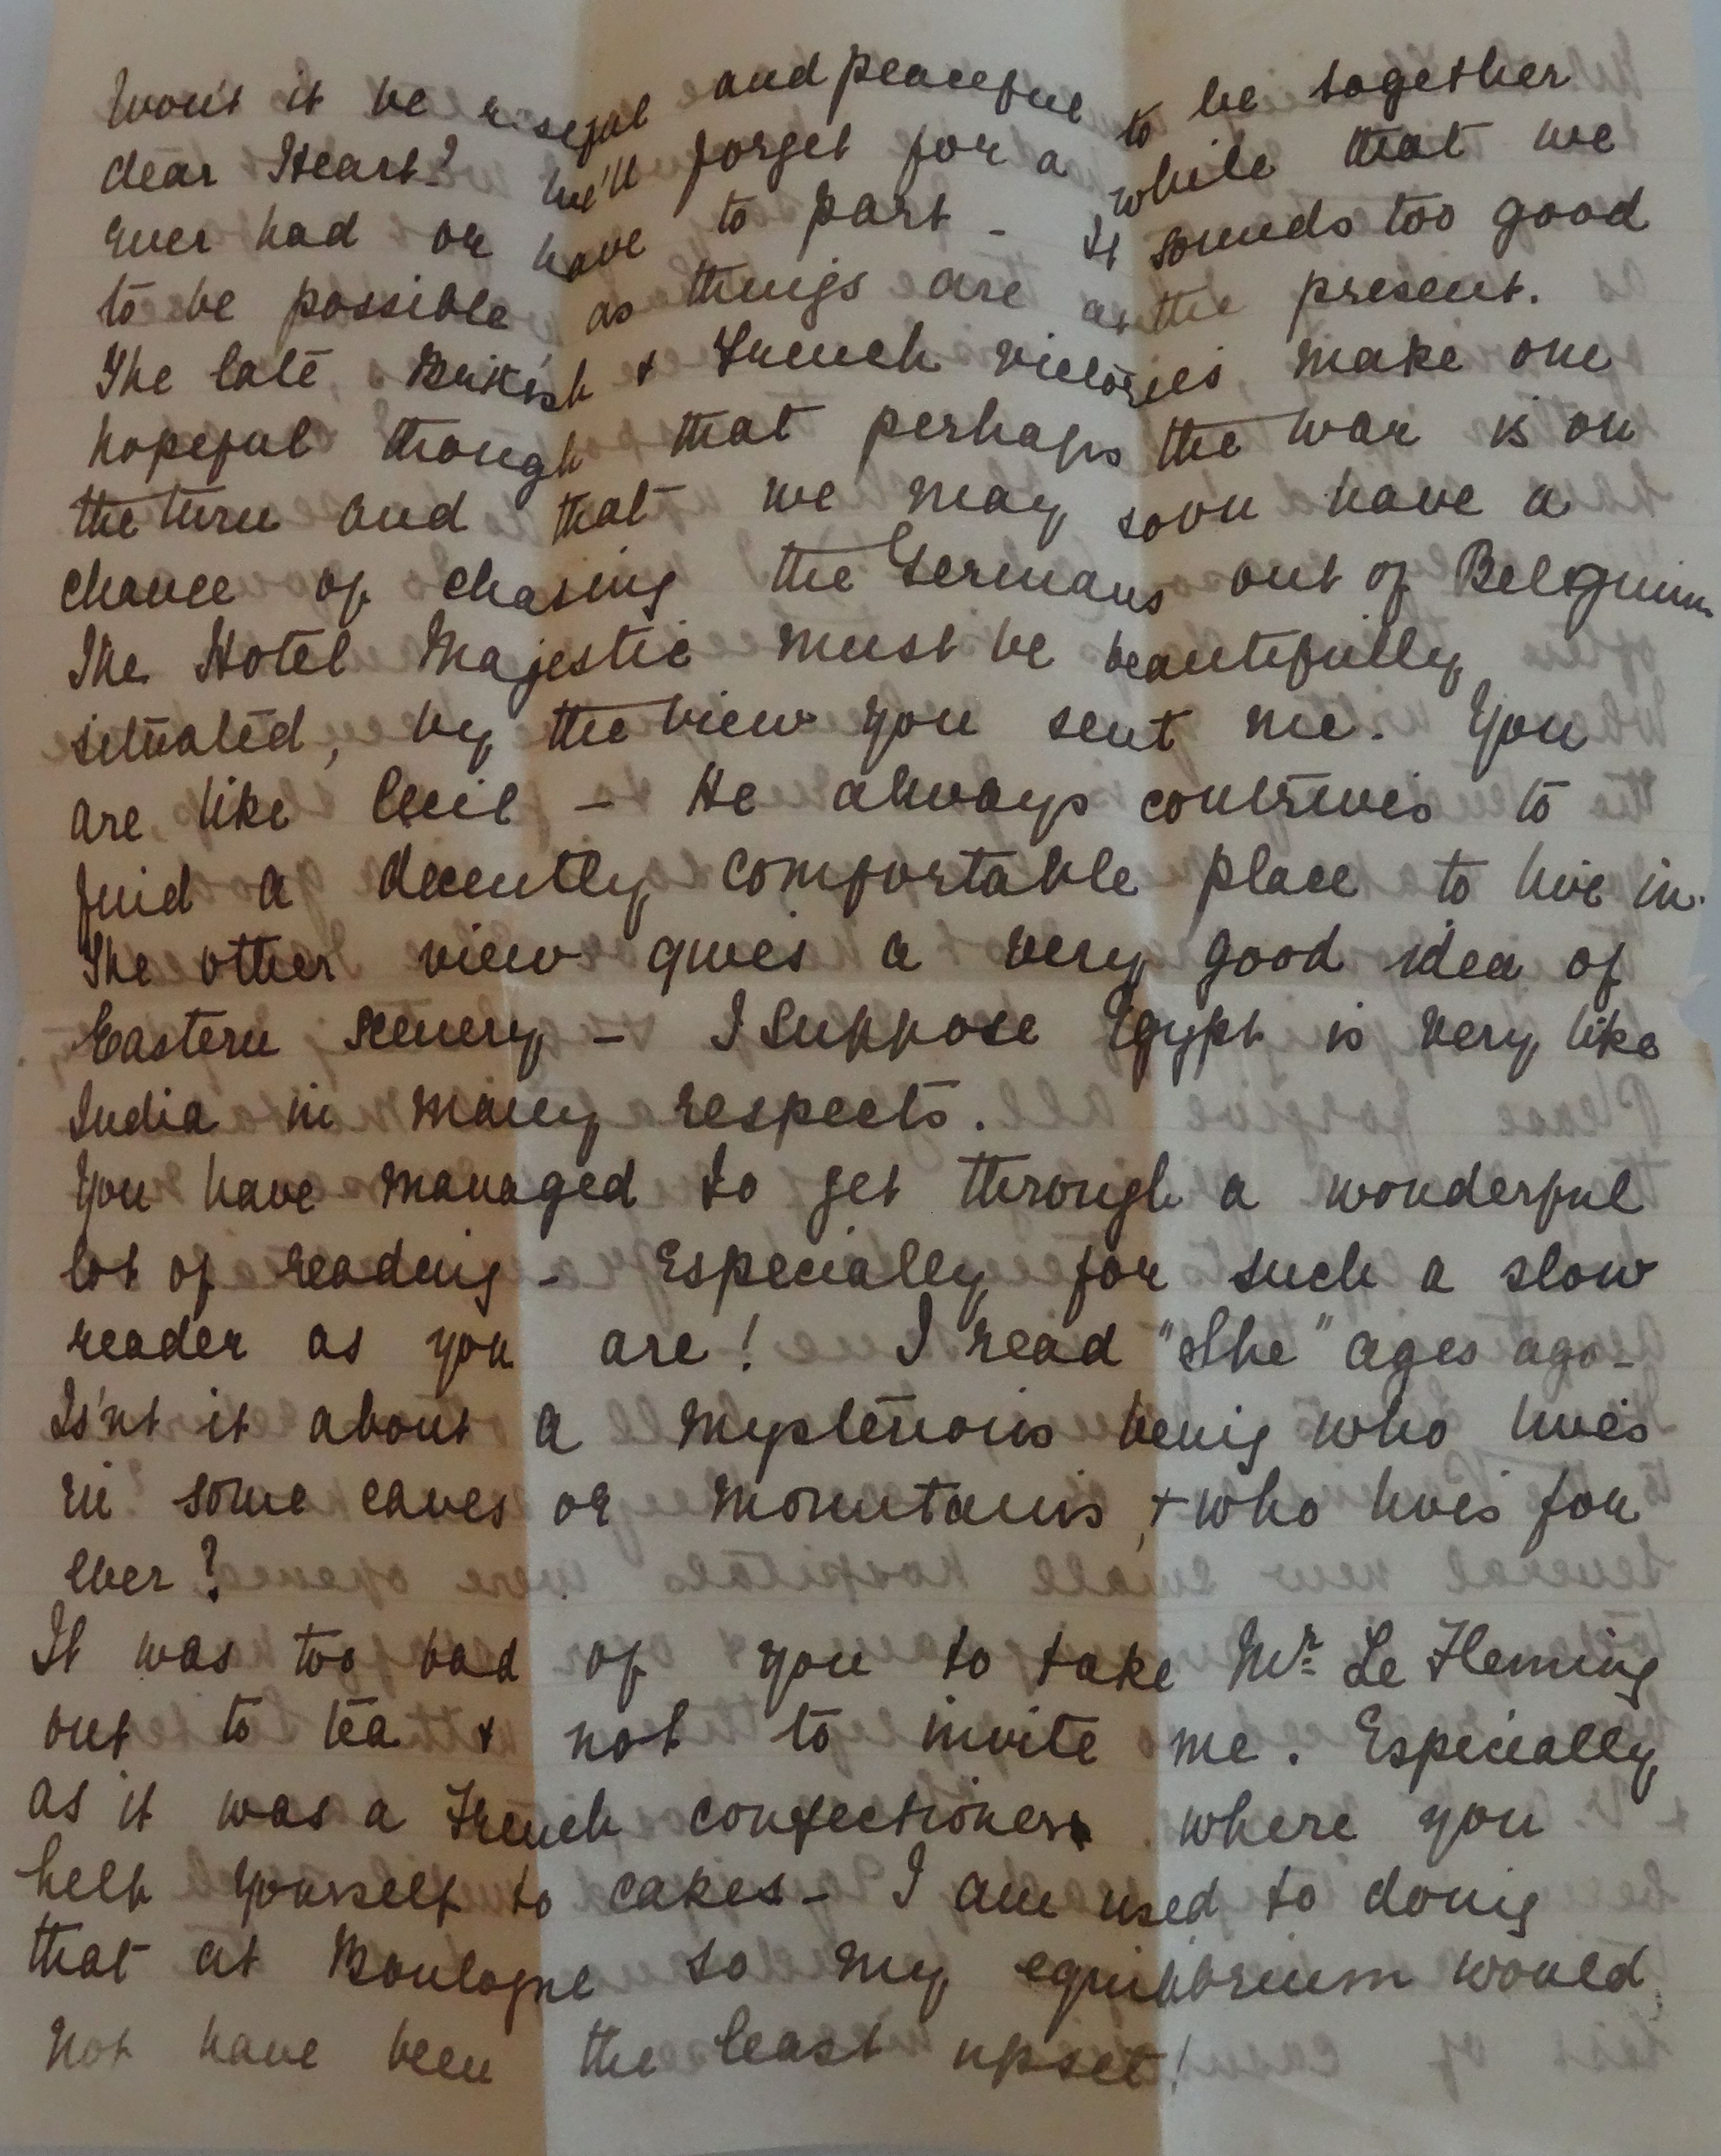 Won't it be restful and peaceful to be together
dear Heart? We'll forget for a while that we
ever had or have to part - It sounds too good
to be possible as things are at the present.
The late British & French victories, make one
hopeful though that perhaps the war is on
the turn and that we may soon have a
chance of chasing the Germans out of Belgium.
The Hotel Majestic must be beautifully
situated, by the view you sent me. You
are like Cecil - He always contrives to
find a decently comfortable place to live in.
The other view gives a very good idea of
Eastern scenery - I suppose Egypt is very like
India in many respects.
You have managed to get through a wonderful
lot of reading - Especially for such a slow
reader as you are! I read "She" ages ago -
Is'nt it about a mysterious being who lives
in some caves or mountains, & who lives for
ever?
It was too bad of you to take Mr Le Fleming
out to tea & not to invite me. Especially
as it was a French confectioners where you
help yourself to cakes - I am used to doing
that at Boulogne so my equilibrium would
not have been the least upset!